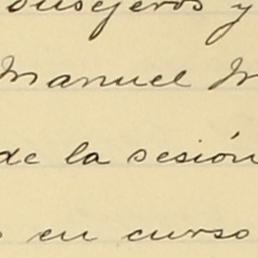 onsejeros y
Manuel M
de la sesión
en curso